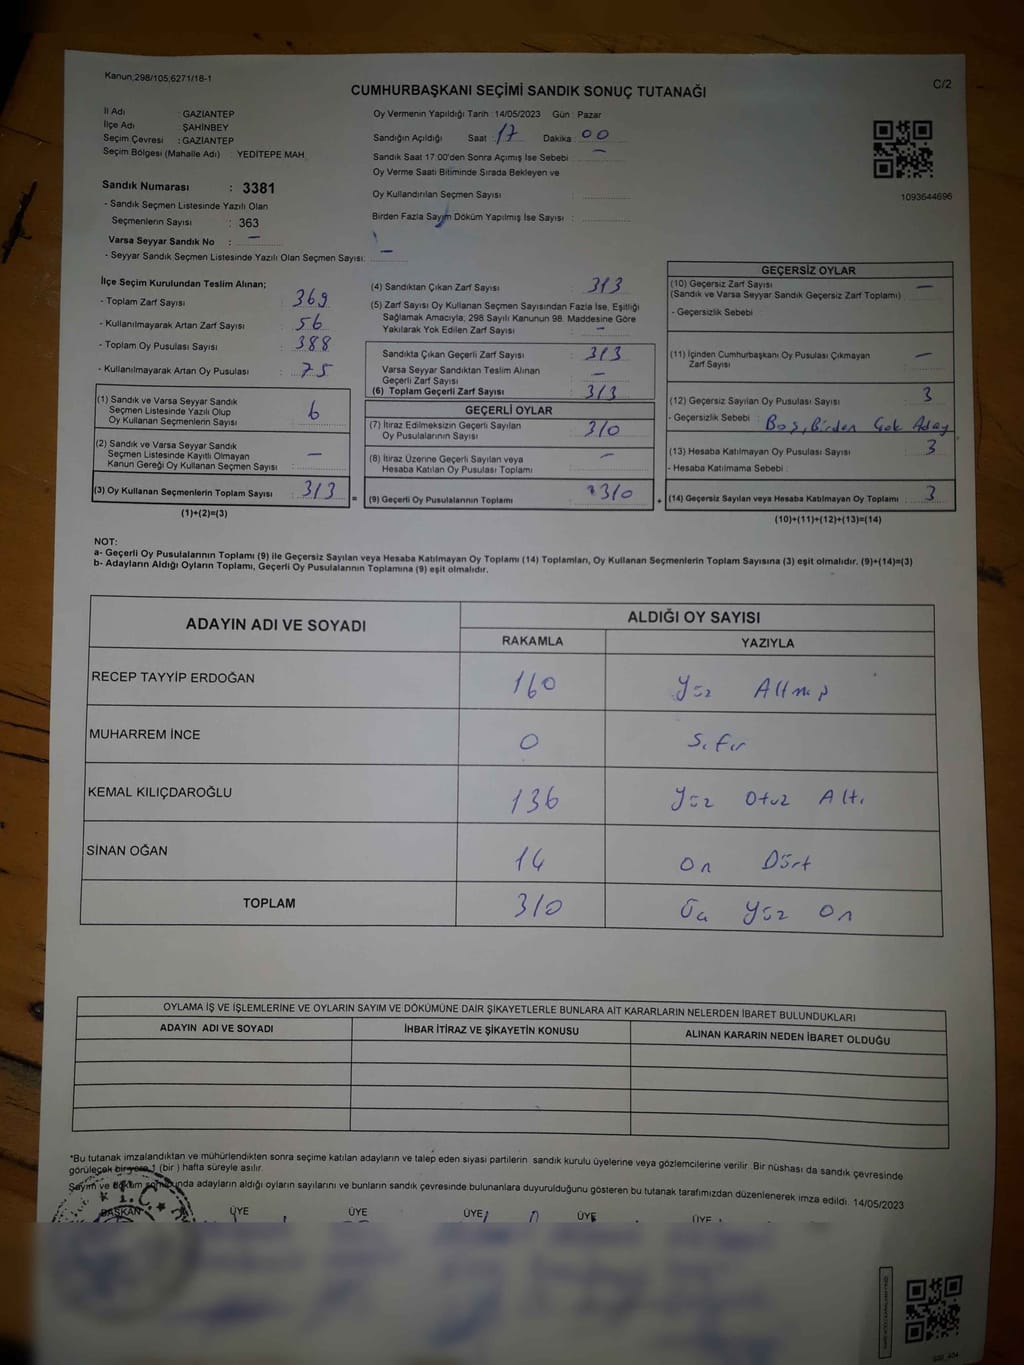 Kanun,298/105,6271/18-1
C/2
CUMHURBAŞKANI SEÇİMİ SANDIK SONUÇ TUTANAĞI
İl Adı : GAZİANTEP
İlçe Adı : ŞAHİNBEY
Seçim Çevresi : GAZİANTEP
Seçim Bölgesi (Mahalle Adı) : YEDİTEPE MAH.
Sandık Numarası : 3381
- Sandık Seçmen Listesinde Yazılı Olan
Seçmenlerin Sayısı : 363
Varsa Seyyar Sandık No : –
- Seyyar Sandık Seçmen Listesinde Yazılı Olan Seçmen Sayısı: –
Oy Vermenin Yapıldığı Tarih :14/05/2023 Gün : Pazar
Sandığın Açıldığı Saat : 17 Dakika : 00
Sandık Saat 17:00'den Sonra Açımış İse Sebebi : –
Oy Verme Saati Bitiminde Sırada Bekleyen ve
Oy Kullandırılan Seçmen Sayısı :
Birden Fazla Sayım Döküm Yapılmış İse Sayısı :
1093644696
İlçe Seçim Kurulundan Teslim Alınan;
- Toplam Zarf Sayısı : 369
- Kullanılmayarak Artan Zarf Sayısı : 56
- Toplam Oy Pusulası Sayısı : 388
- Kullanılmayarak Artan Oy Pusulası : 75
(1) Sandık ve Varsa Seyyar Sandık
Seçmen Listesinde Yazılı Olup
Oy Kullanan Seçmenlerin Sayısı : 6
(2) Sandık ve Varsa Seyyar Sandık
Seçmen Listesinde Kayıtlı Olmayan
Kanun Gereği Oy Kullanan Seçmen Sayısı : –
(3) Oy Kullanan Seçmenlerin Toplam Sayısı : 313
(1)+(2)=(3)
(4) Sandıktan Çıkan Zarf Sayısı : 313
(5) Zarf Sayısı Oy Kullanan Seçmen Sayısından Fazla İse, Eşitliği
Sağlamak Amacıyla; 298 Sayılı Kanunun 98. Maddesine Göre
Yakılarak Yok Edilen Zarf Sayısı : –
Sandıkta Çıkan Geçerli Zarf Sayısı : 313
Varsa Seyyar Sandıktan Teslim Alınan
Geçerli Zarf Sayısı : –
(6) Toplam Geçerli Zarf Sayısı : 313
GEÇERLİ OYLAR
(7) İtiraz Edilmeksizin Geçerli Sayılan
Oy Pusulalarının Sayısı : 310
(8) İtiraz Üzerine Geçerli Sayılan veya
Hesaba Katılan Oy Pusulası Toplamı : –
(9) Geçerli Oy Pusulalarının Toplamı : 310
GEÇERSİZ OYLAR
(10) Geçersiz Zarf Sayısı : –
(Sandık ve Varsa Seyyar Sandık Geçersiz Zarf Toplamı)
- Geçersizlik Sebebi :
(11) İçinden Cumhurbaşkanı Oy Pusulası Çıkmayan
Zarf Sayısı : –
(12) Geçersiz Sayılan Oy Pusulası Sayısı : 3
- Geçersizlik Sebebi : Boş, Birden Çok Aday
(13) Hesaba Katılmayan Oy Pusulası Sayısı : 3
- Hesaba Katılmama Sebebi :
(14) Geçersiz Sayılan veya Hesaba Katılmayan Oy Toplamı : 3
(10)+(11)+(12)+(13)=(14)
NOT:
a- Geçerli Oy Pusulalarının Toplamı (9) ile Geçersiz Sayılan veya Hesaba Katılmayan Oy Toplamı (14) Toplamları, Oy Kullanan Seçmenlerin Toplam Sayısına (3) eşit olmalıdır. (9)+(14)=(3)
b- Adayların Aldığı Oyların Toplamı, Geçerli Oy Pusulalarının Toplamına (9) eşit olmalıdır.
ADAYIN ADI VE SOYADI ALDIĞI OY SAYISI
RAKAMLA YAZIYLA
RECEP TAYYİP ERDOĞAN 160 Yüz Altmış
MUHARREM İNCE 0 Sıfır
KEMAL KILIÇDAROĞLU 136 Yüz Otuz Altı
SİNAN OĞAN 14 On Dört
TOPLAM 310 Üç Yüz On
OYLAMA İŞ VE İŞLEMLERİNE VE OYLARIN SAYIM VE DÖKÜMÜNE DAİR ŞİKAYETLERLE BUNLARA AİT KARARLARIN NELERDEN İBARET BULUNDUKLARI
ADAYIN ADI VE SOYADI İHBAR İTİRAZ VE ŞİKAYETİN KONUSU ALINAN KARARIN NEDEN İBARET OLDUĞU
*Bu tutanak imzalandıktan ve mühürlendikten sonra seçime katılan adayların ve talep eden siyasi partilerin sandık kurulu üyelerine veya gözlemcilerine verilir. Bir nüshası da sandık çevresinde
görülecek bir yere 1 (bir ) hafta süreyle asılır.
Sayım ve döküm sonunda adayların aldığı oyların sayılarını ve bunların sandık çevresinde bulunanlara duyurulduğunu gösteren bu tutanak tarafımızdan düzenlenerek imza edildi. 14/05/2023
T.C.
BAŞKAN ÜYE ÜYE ÜYE ÜYE ÜYE